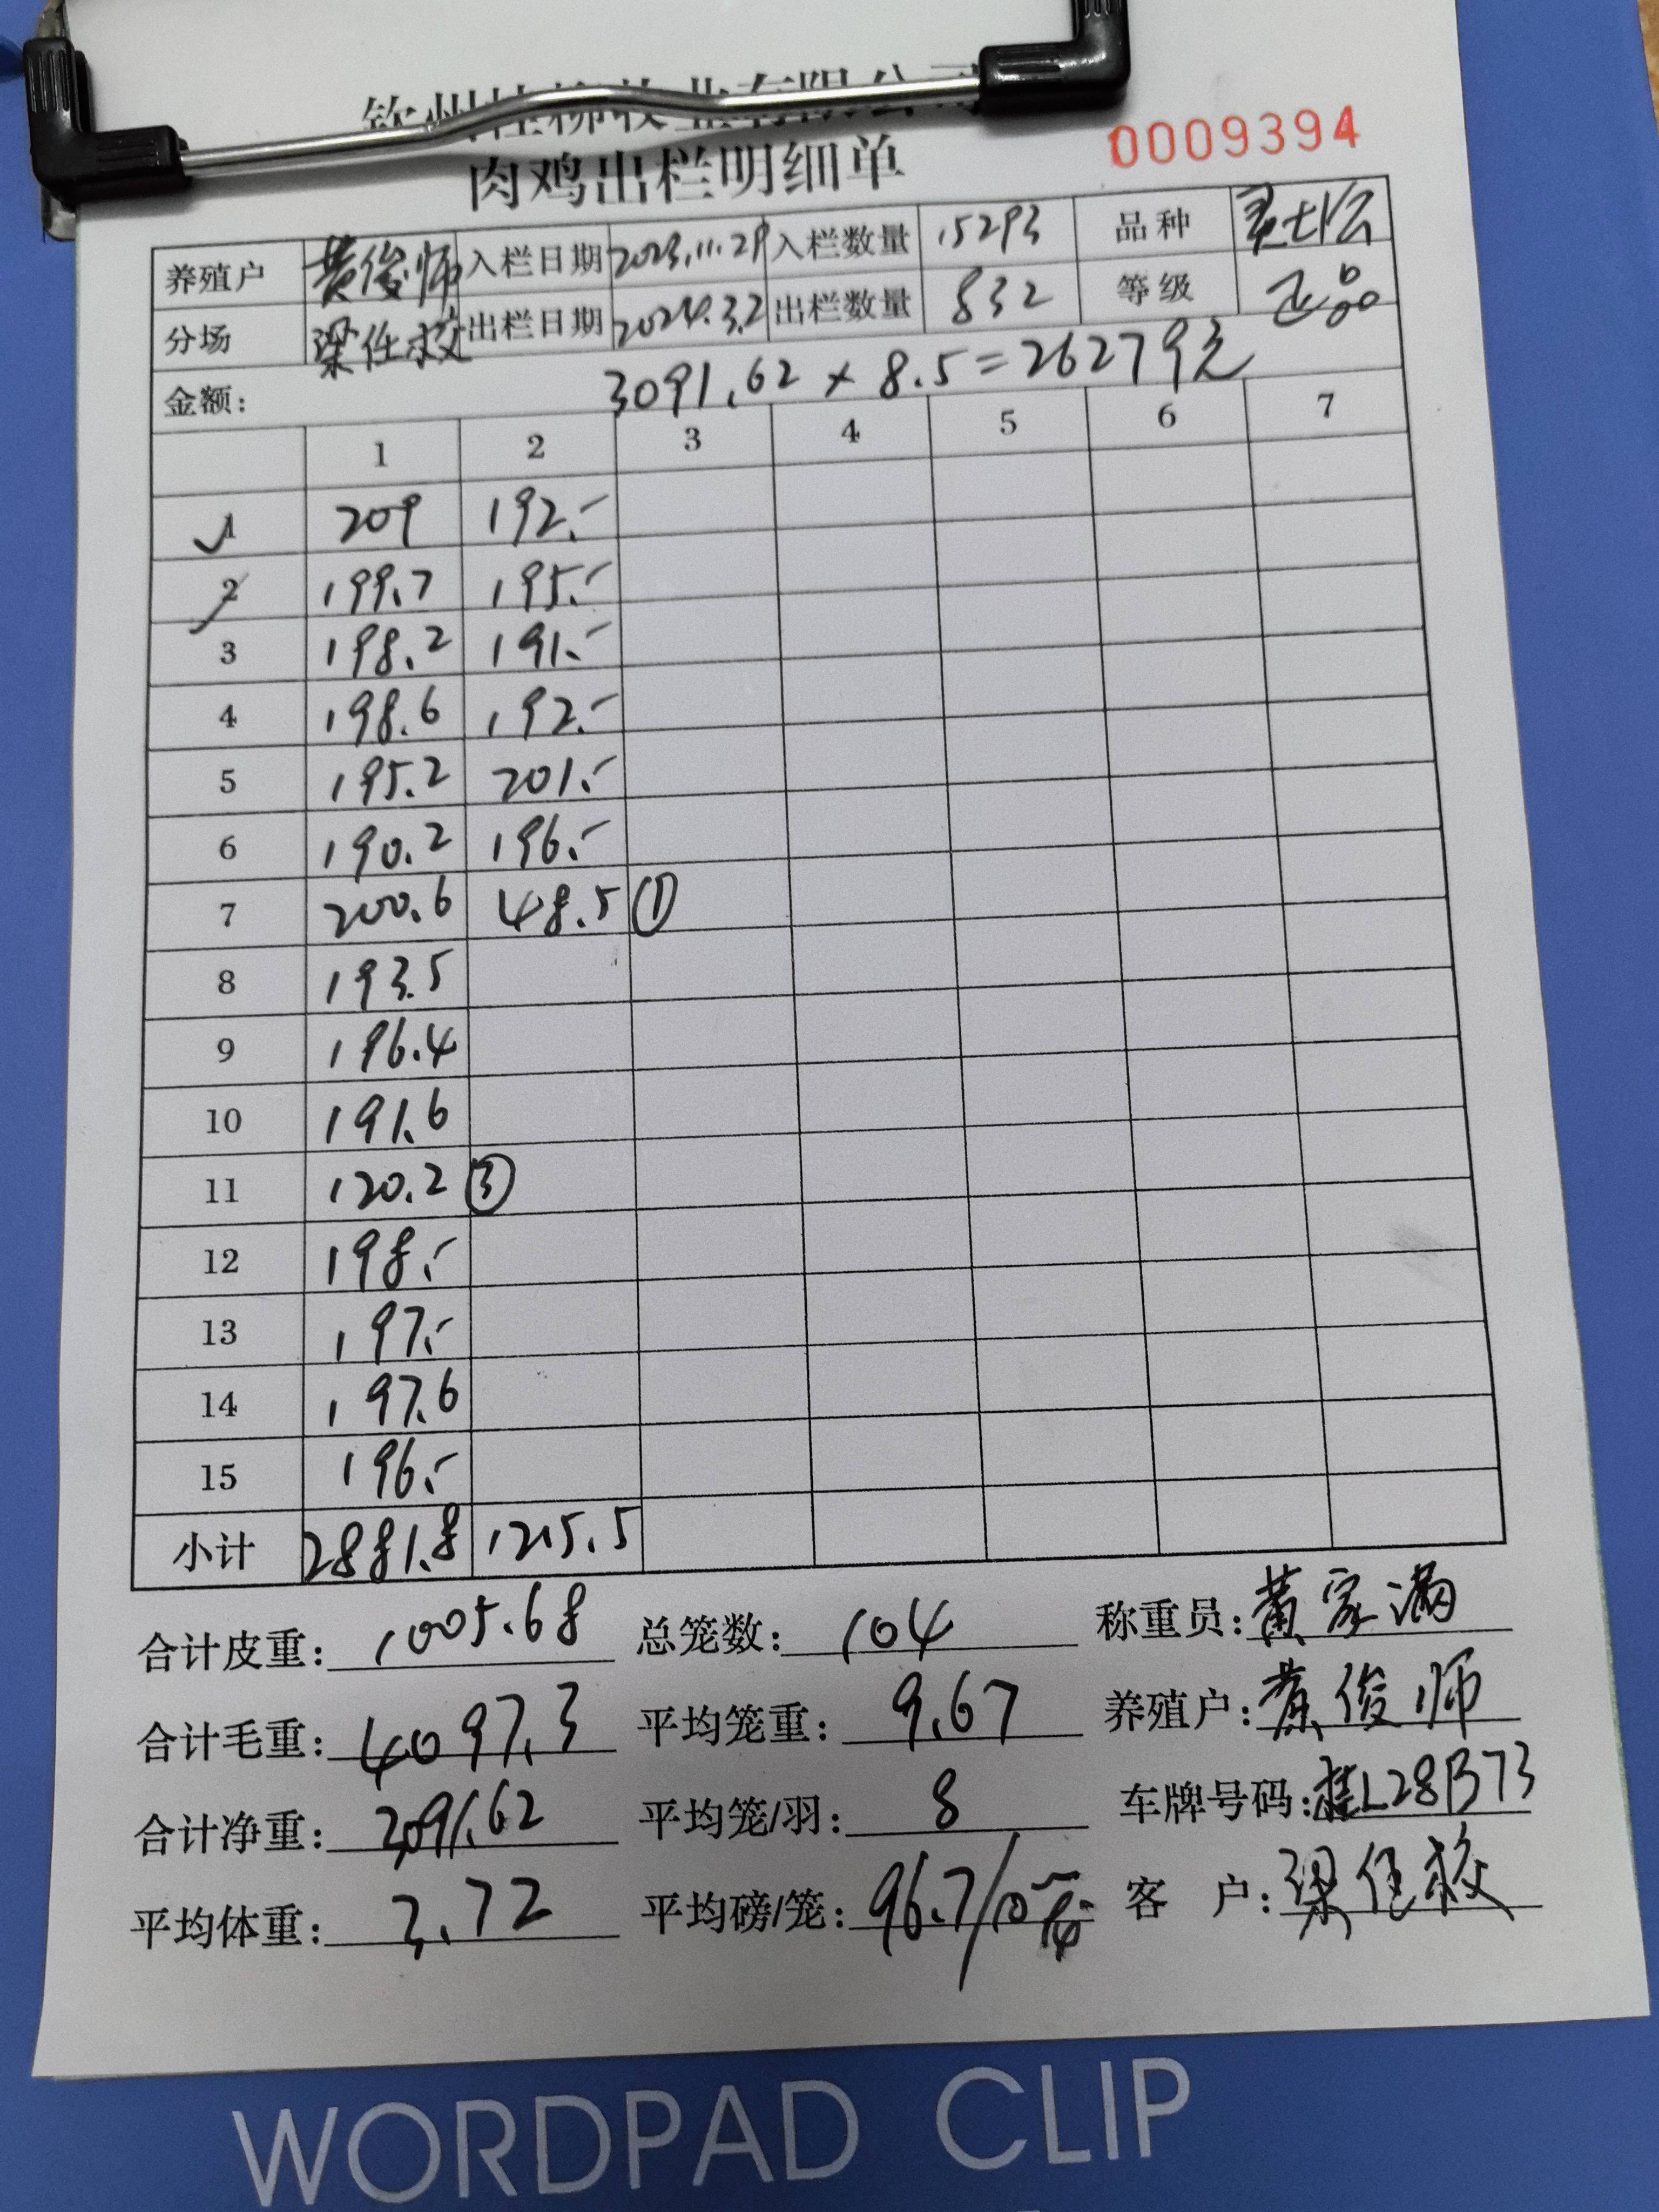 肉鸡出栏明细单
0009394
养殖户 黄俊师 入栏日期 2023.11.29 入栏数量 15293 品种
分场 梁任 出栏日期 2024.3.2 出栏数量 832 等级 正品
金额: 3091.62 × 8.5 = 26279元
1 2 3 4 5 6 7
1 209 192.-
2 199.7 195.-
3 198.2 191.-
4 198.6 192.-
5 195.2 201.-
6 190.2 196.-
7 200.6 48.5 ①
8 193.5
9 196.4
10 191.6
11 120.2 ③
12 198.-
13 197.-
14 197.6
15 196.-
小计 2881.8 1215.5
合计皮重: 1005.68 总笼数: 104 称重员: 黄家满
合计毛重: 4097.3 平均笼重: 9.67 养殖户: 黄俊师
合计净重: 3091.62 平均笼/羽: 8 车牌号码: 桂L28B73
平均体重: 3.72 平均磅/笼: 96.7/10 客 户: 梁任
WORDPAD CLIP